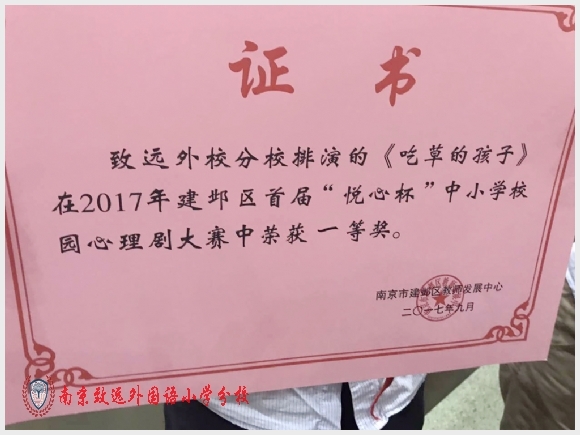 证书
致远外校分校排演的《吃草的孩子》
在2017年建邺区首届“悦心杯”中小学校
园心理剧大赛中荣获一等奖。
南京市建邺区教师发展中心
二〇一七年九月
南京致远外国语小学分校